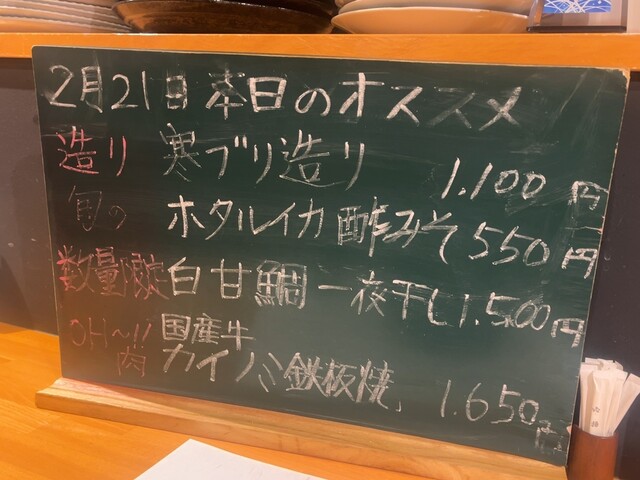 2月21日 本日のオススメ
造り 寒ブリ造り 1.100円
旬の ホタルイカ酢みそ 550円
数量限定 白甘鯛一夜干し 1.500円
OH〜!! 国産牛
肉 カイノミ鉄板焼 1.650円